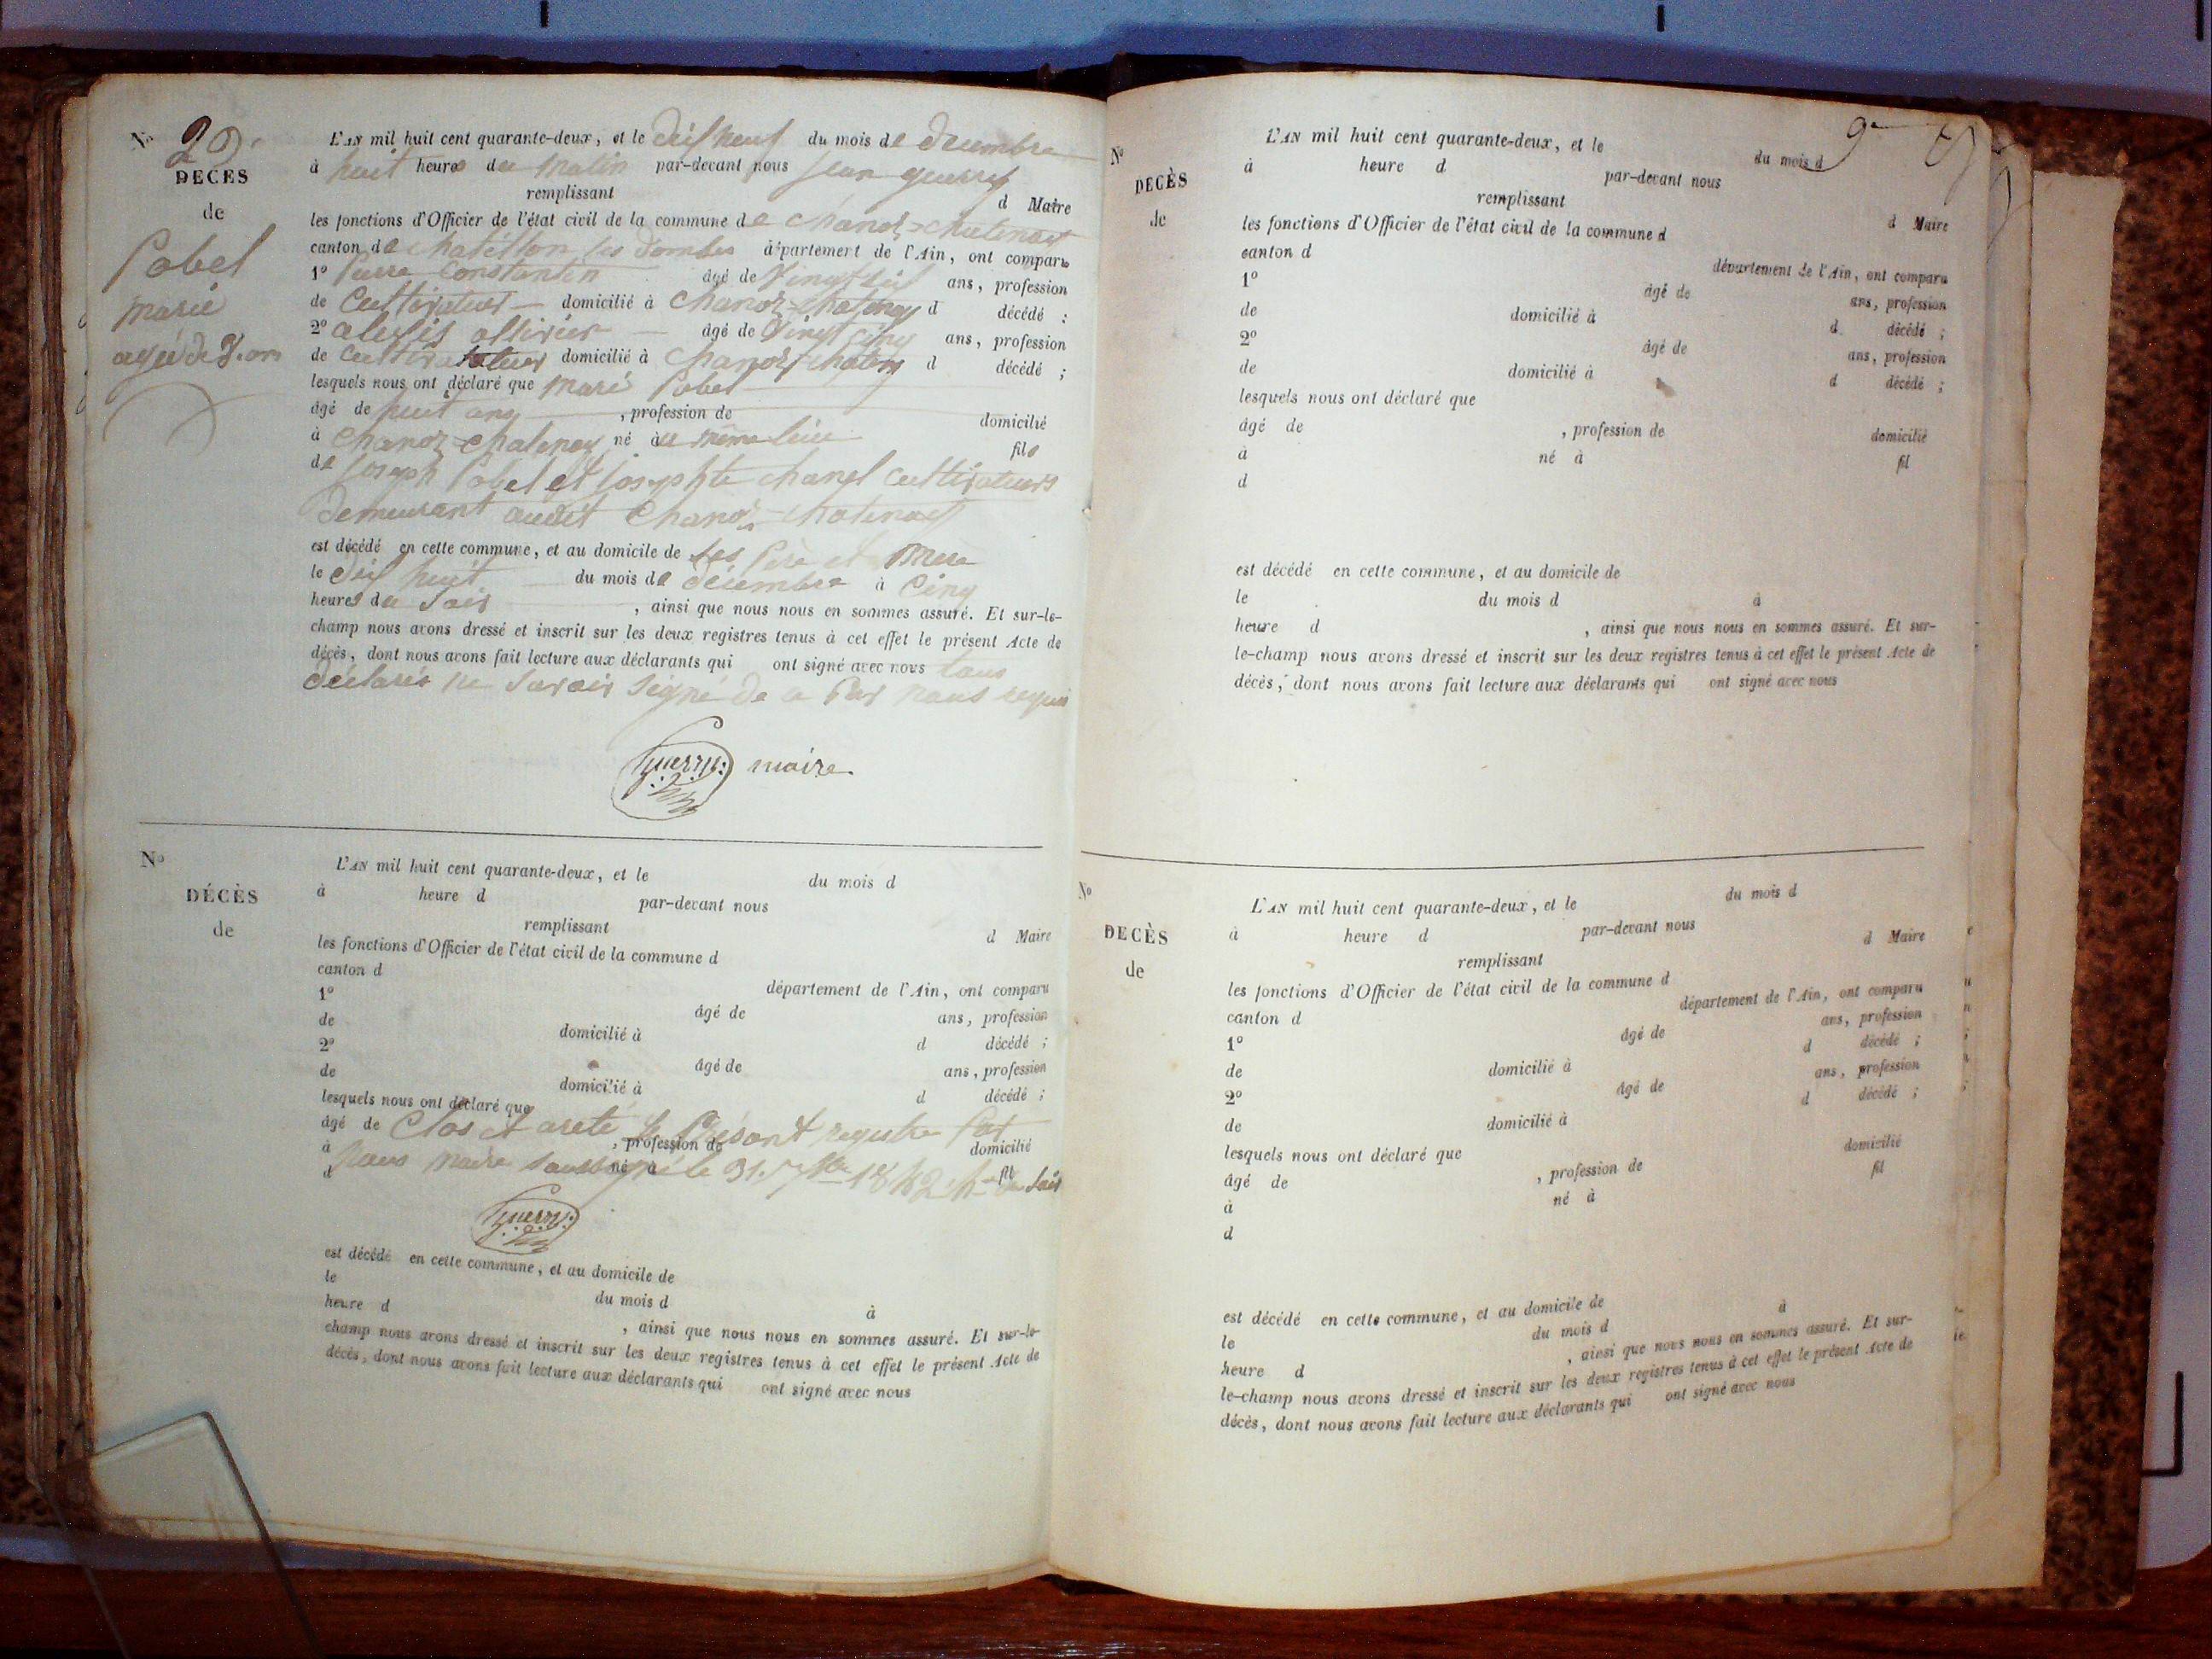 No 20.
DECES
de
Pobel
marie
agé de 8. ans
L'AN mil huit cent quarante-deux, et le dix neuf du mois de decembre
à huit heures du matin par-devant nous Jean guerry
remplissant d Maire
les fonctions d'Officier de l'état civil de la commune de Chanoz-chatenay
canton de chatillon les dombes département de l'Ain, ont comparu
1º Pierre Constantin âgé de vingt six ans, profession
de Cultivateur domicilié à Chanoz-chatenay d décédé :
2º alexis ollivier âgé de vingt cinq ans, profession
de cultivateur domicilié à Chanoz-chateny d décédé ;
lesquels nous ont déclaré que Marie Pobel
âgé de huit ans , profession de domicilié
à Chanoz-chatenay né au même lieu fil
de Joseph Pobel et Josephte chanel cultivateurs
demeurant audit Chanoz-chatenay
est décédé en cette commune, et au domicile de ses père et mere
le dix huit du mois de decembre à cinq
heures du soir , ainsi que nous nous en sommes assuré. Et sur-le-
champ nous avons dressé et inscrit sur les deux registres tenus à cet effet le présent Acte de
décès, dont nous avons fait lecture aux déclarants qui ont signé avec nous
declarés ne savoir signé de ce par nous requis
Guerry maire.
No
DÉCÈS
de
L'AN mil huit cent quarante-deux, et le du mois d
à heure d par-devant nous
remplissant d Maire
les fonctions d'Officier de l'état civil de la commune d
canton d département de l'Ain, ont comparu
1º âgé de ans, profession
de domicilié à d décédé ;
2º âgé de ans, profession
de domicilié à d décédé ;
lesquels nous ont déclaré que
âgé de , profession de domicilié
Clos et areté le présent registre par
à né à fil
nous maire soussigné le 31. Xbre 1842 du soir
d
Guerry
est décédé en cette commune, et au domicile de
le du mois d à
heure d , ainsi que nous nous en sommes assuré. Et sur-le-
champ nous avons dressé et inscrit sur les deux registres tenus à cet effet le présent Acte de
décès, dont nous avons fait lecture aux déclarants qui ont signé avec nous
No
DECÈS
de
L'AN mil huit cent quarante-deux, et le du mois d
à heure d par-devant nous
remplissant d Maire
les fonctions d'Officier de l'état civil de la commune d
canton d département de l'Ain, ont comparu
1º âgé de ans, profession
de domicilié à d décédé ;
2º âgé de ans, profession
de domicilié à d décédé ;
lesquels nous ont déclaré que
âgé de , profession de domicilié
à né à fil
d
est décédé en cette commune, et au domicile de
le du mois d à
heure d , ainsi que nous nous en sommes assuré. Et sur-
le-champ nous avons dressé et inscrit sur les deux registres tenus à cet effet le présent Acte de
décès, dont nous avons fait lecture aux déclarants qui ont signé avec nous
No
DECÈS
de
L'AN mil huit cent quarante-deux, et le du mois d
à heure d par-devant nous
remplissant d Maire
les fonctions d'Officier de l'état civil de la commune d
canton d département de l'Ain, ont comparu
1º âgé de ans, profession
de domicilié à d décédé ;
2º âgé de ans, profession
de domicilié à d décédé ;
lesquels nous ont déclaré que
âgé de , profession de domicilié
à né à fil
d
est décédé en cette commune, et au domicile de
le du mois d à
heure d , ainsi que nous nous en sommes assuré. Et sur-
le-champ nous avons dressé et inscrit sur les deux registres tenus à cet effet le présent Acte de
décès, dont nous avons fait lecture aux déclarants qui ont signé avec nous